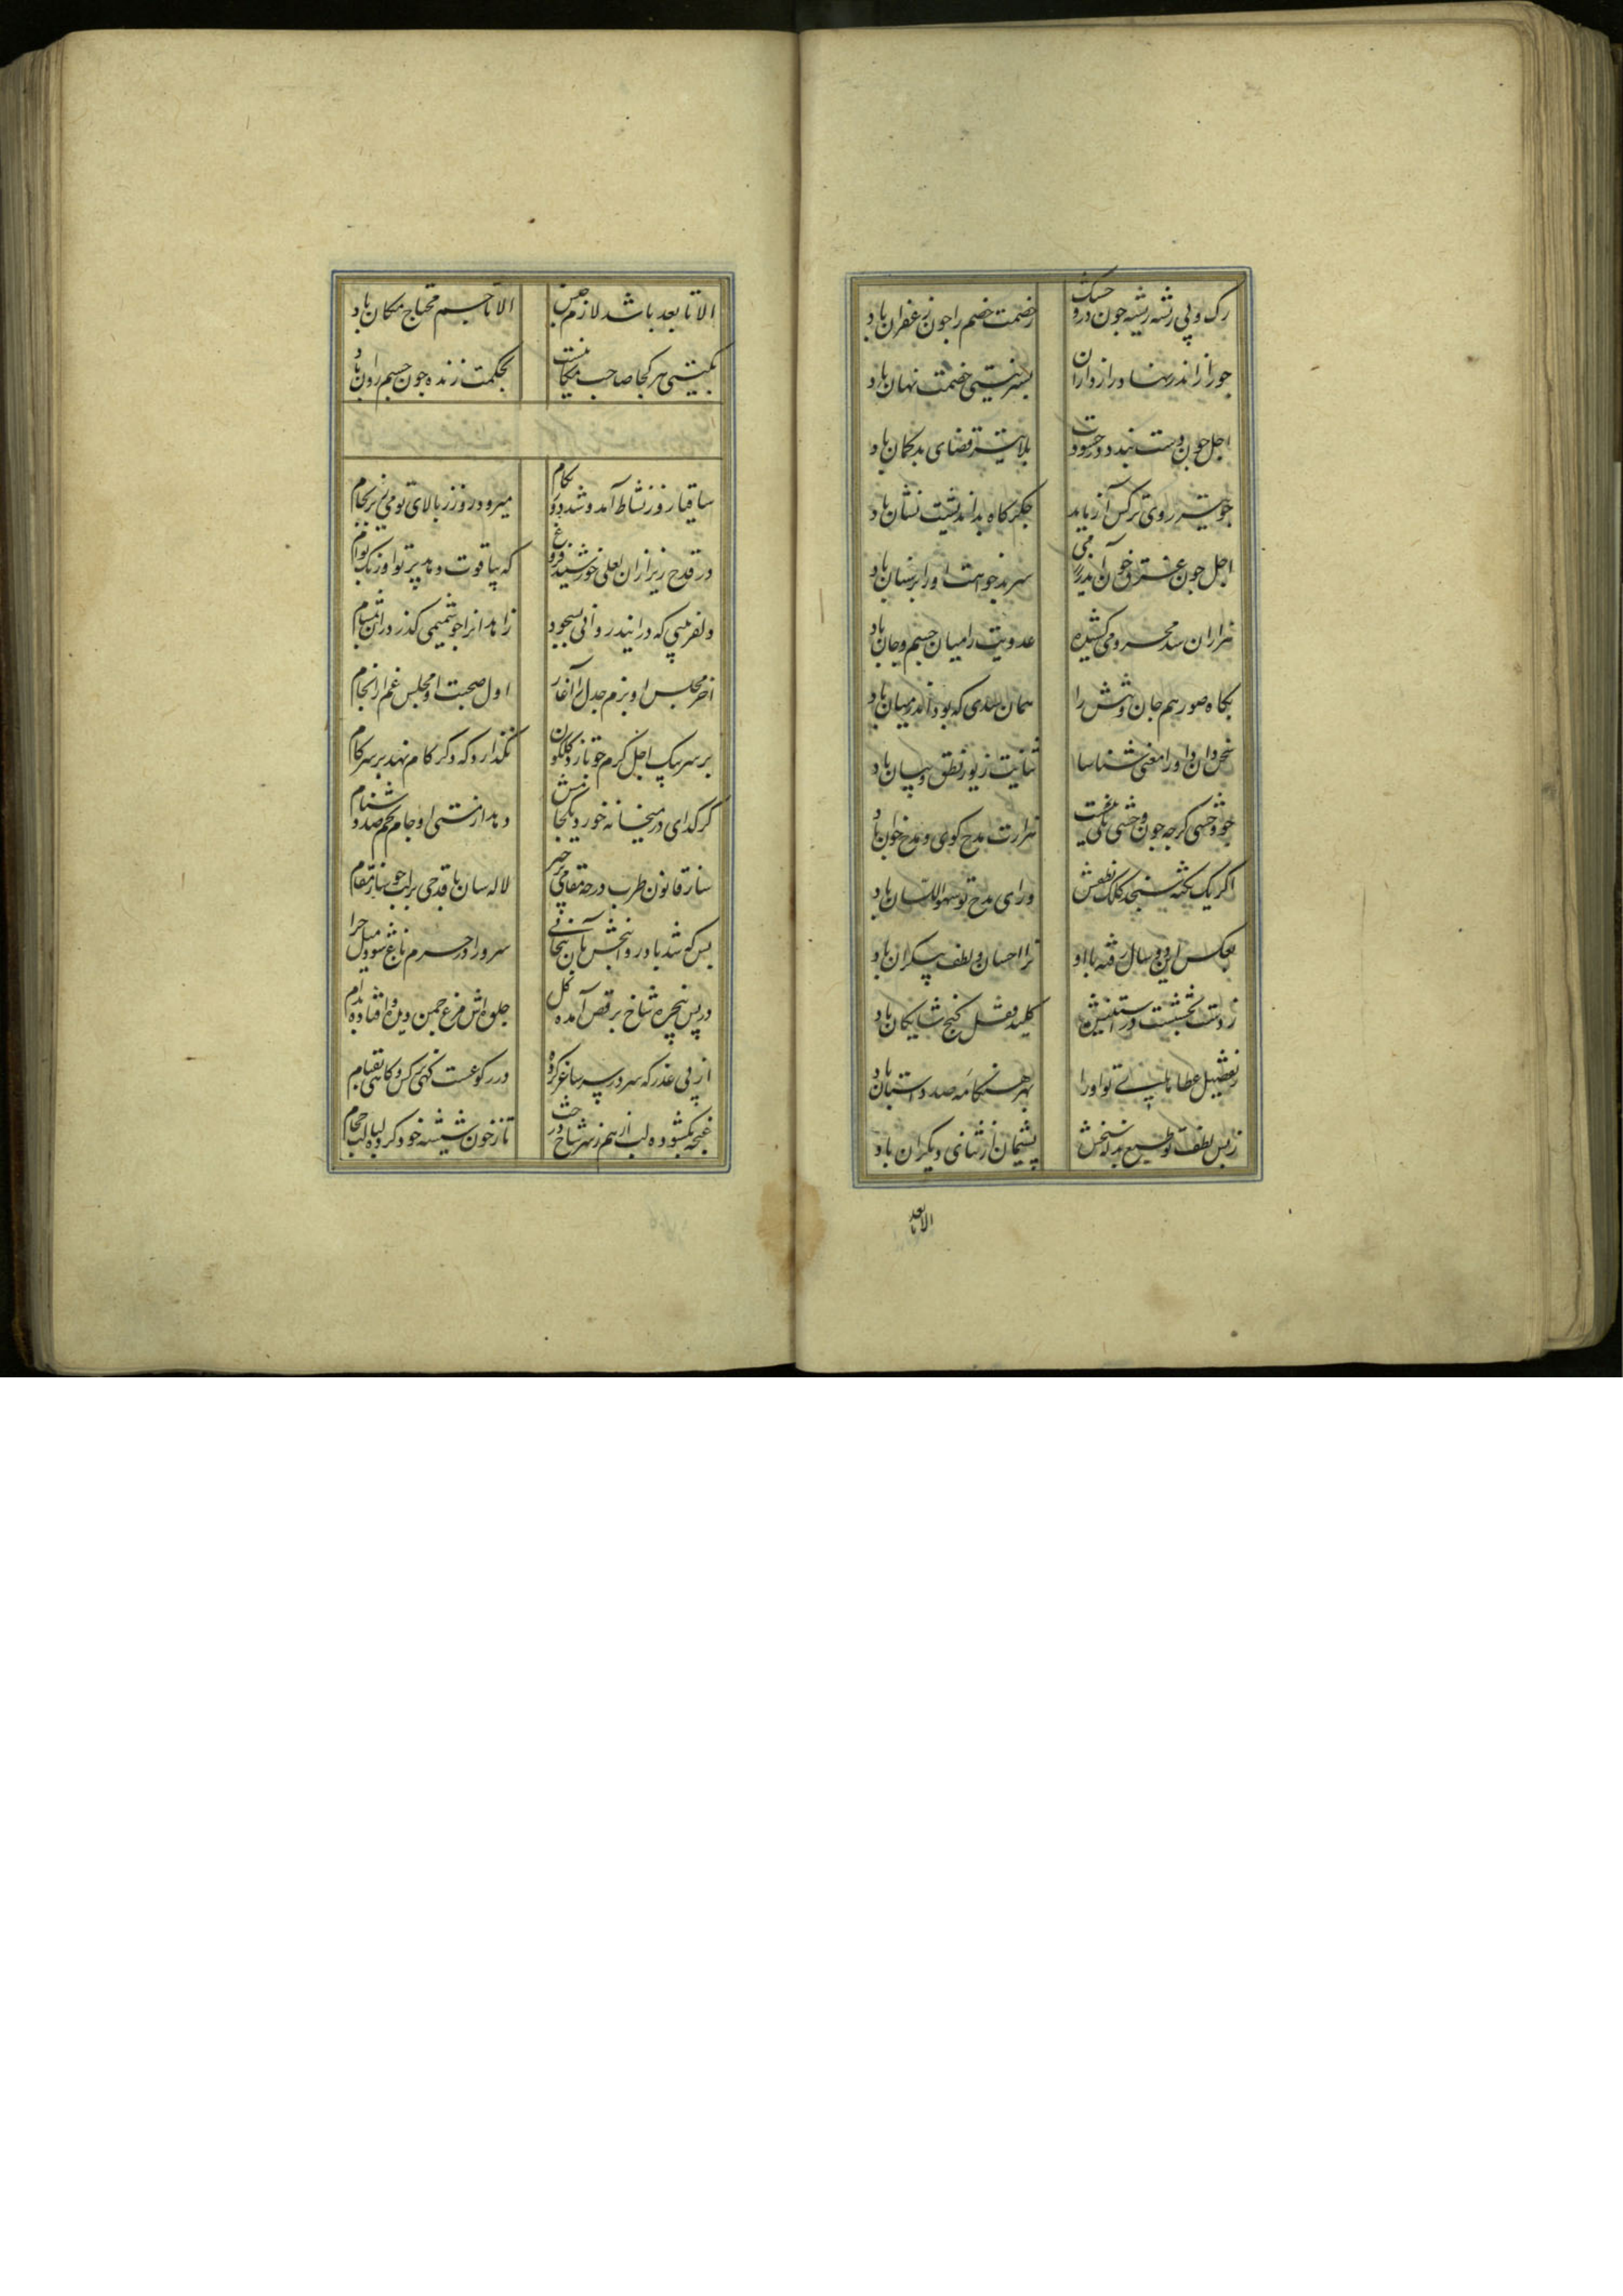 رک و پی رشه ریشه جون درو خسک زخصمت خصم را جون زعفران باد
جو راز اندر نهاد رازداران بسر نیستی خصمت نهان باد
اجل جون دست بندد در حسودت بلا همشر قضای بدکمان باد
جو تیر روی ترکس آزماید جکرکاه بداندیشت نشان باد
اجل جون عشرق خون آندر سر بدجواهت اورا بر سنان باد
هزاران سد محرومی کشیده عدویت را میان جسم و جان باد
بکاه صور هم جان و تنش را همان بعدی که بود اندر میان باد
سخن دان داورا معنی شناسا ثنایت زیور نطق و بیان باد
جو وحشی کرجه جون وحشی نکفت هزارت مدح کوی و مدح خوان باد
اگر یک نکته سنجد کلک نطقش ورای مدح تو سهو اللسان باد
بعکس این دو سال رفته با او ترا احسان و لطف بیکران باد
ز دست بخششت در استینش کلید قفل کنج شایکان باد
ز تفضیل عطایای تو اورا بهر هنکامه صد داستان باد
ز بس لطف تو طبع بداسنجش پشیمان از ثنای دیکران باد
الا تا بعد
الا تا بعد باشد لازم جسم الا تا جسم محتاج مکان باد
بکیتی هر کجا صاحب مکانیست بحکمت زنده جون جسم روان باد
ساقیا روز نشاط آمد و شد دور بکام میرود روز ز بالای تو می ریز بجام
در قدح ریز از ان لعلی خورشید فروغ که بیاقوت دهد پرتو او رنک بوام
دلفریبی که در ایند روانی بسجود زاهدانرا جو شمیمی کذرد ران بمشام
آخر مجلس او بزم جدل را آغاز اول صحبت او مجلس غم را انجام
بر سر پیک اجل کرم جو تازد کلکون نکذارد که دکر کام نهد بر سر کام
کر کدای در میخانه خورد یکجا نش دهد از مستی او جام بجم صد دشنام
ساز قانون طرب در جه مقامی برجیز لاله سان با قدحی بر لب جو ساز مقام
بس که شد باد روانبخش بان بیجانی سرو را در حرم باغ شود میل خرام
در پس پنجره شاخ برقص آمده کل جلوه اش مرغ جمن دیده و افتاده بدام
از پی عذر که سر در سر ساغر کرده در رکوعست کهی نرکس و کاهی بقیام
غنجه بکشوده لب از هم ز سر شاخ درخت تا ز خون شیشه خود کرده لبالب حجام